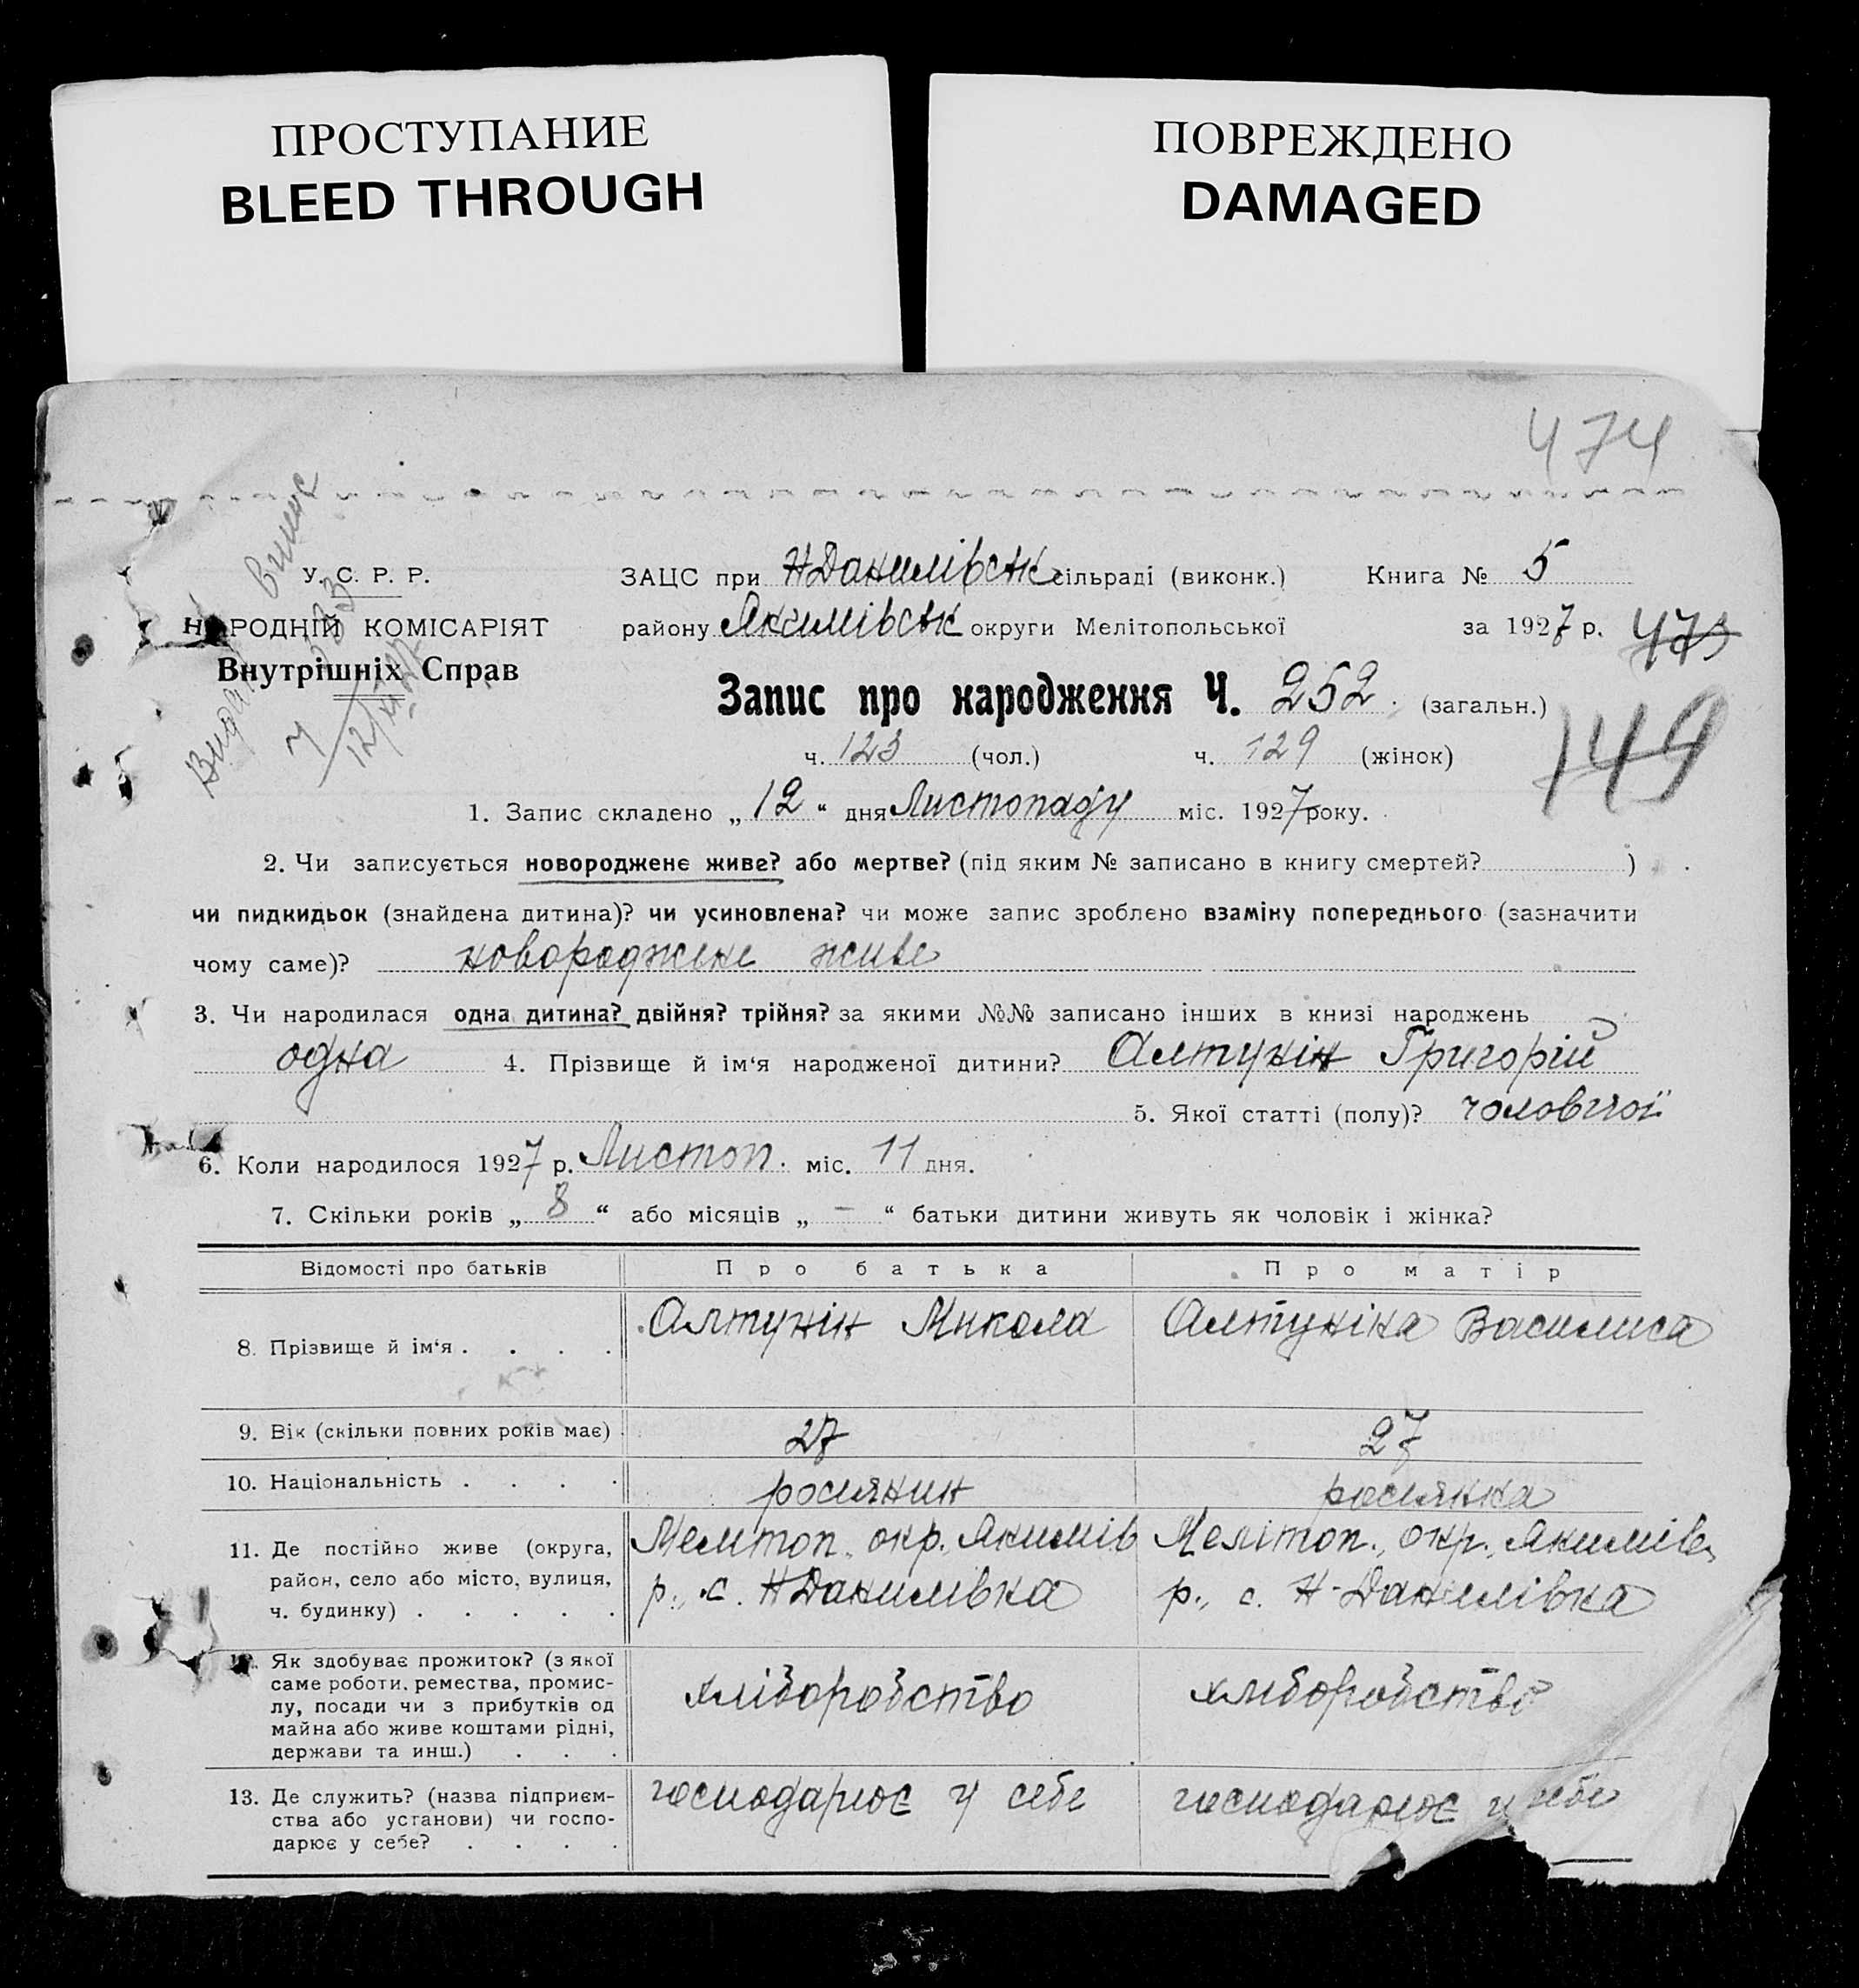 ПРОСТУПАНИЕ
BLEED THROUGH
ПОВРЕЖДЕНО
DAMAGED
474
У. С. Р. Р.
НАРОДНІЙ КОМІСАРІЯТ
Внутрішніх Справ
ЗАЦС при Н Данилівськ сільраді (виконк.) Книга № 5
району Якимівськ округи Мелітопольської за 1927 р. 473
Запис про народження Ч. 252. (загальн.)
149
ч. 123 (чол.) ч. 129 (жінок)
1. Запис складено „ 12 “ дня Листопаду міс. 1927 року.
2. Чи записується новороджене живе? або мертве? (під яким № записано в книгу смертей? )
чи пидкидьок (знайдена дитина)? чи усиновлена? чи може запис зроблено взаміну попереднього (зазначити
чому саме)? новороджене живе
3. Чи народилася одна дитина? двійня? трійня? за якими №№ записано інших в книзі народжень
одна 4. Прізвище й ім‘я народженої дитини? Алтунін Григорій
5. Якої статті (полу)? чоловічої
6. Коли народилося 1927 р. Листоп. міс. 11 дня.
7. Скільки років „ 8 “ або місяців „ – “ батьки дитини живуть як чоловік і жінка?
Відомості про батьків Про батька Про матір
8. Прізвище й ім‘я . . . . Алтунін Микола Алтуніна Василиса
9. Вік (скільки повних років має) 27 27
10. Національність . . . . росіянин росіянка
11. Де постійно живе (округа,
район, село або місто, вулиця,
ч. будинку) . . . . .
Мелітоп. окр. Якимів
р., с. Н Данилівка
Мелітоп., окр., Якимів.
р., с. Н-Данилівка
Як здобуває прожиток? (з якої
саме роботи, ремества, промис-
лу, посади чи з прибутків од
майна або живе коштами рідні,
держави та инш.) . . .
хліборобство хліборобство
13. Де служить? (назва підприєм-
ства або установи) чи госпо-
дарює у себе? . . . .
господарює у себе господарює у себе